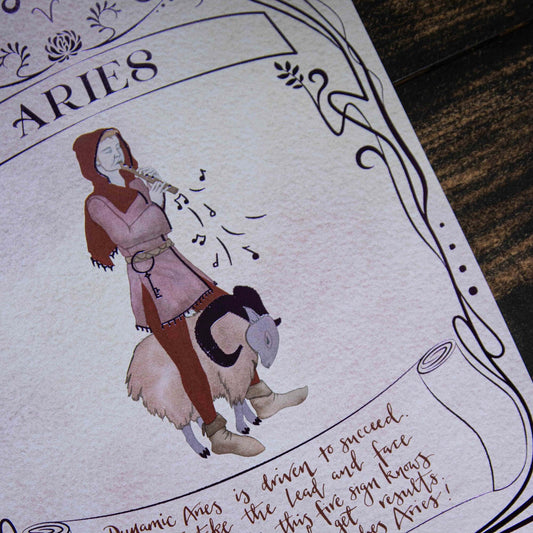 ARIES
Dynamic Aries is driven to succeed.
take the lead and face
this fire sign knows
get results
Aries!